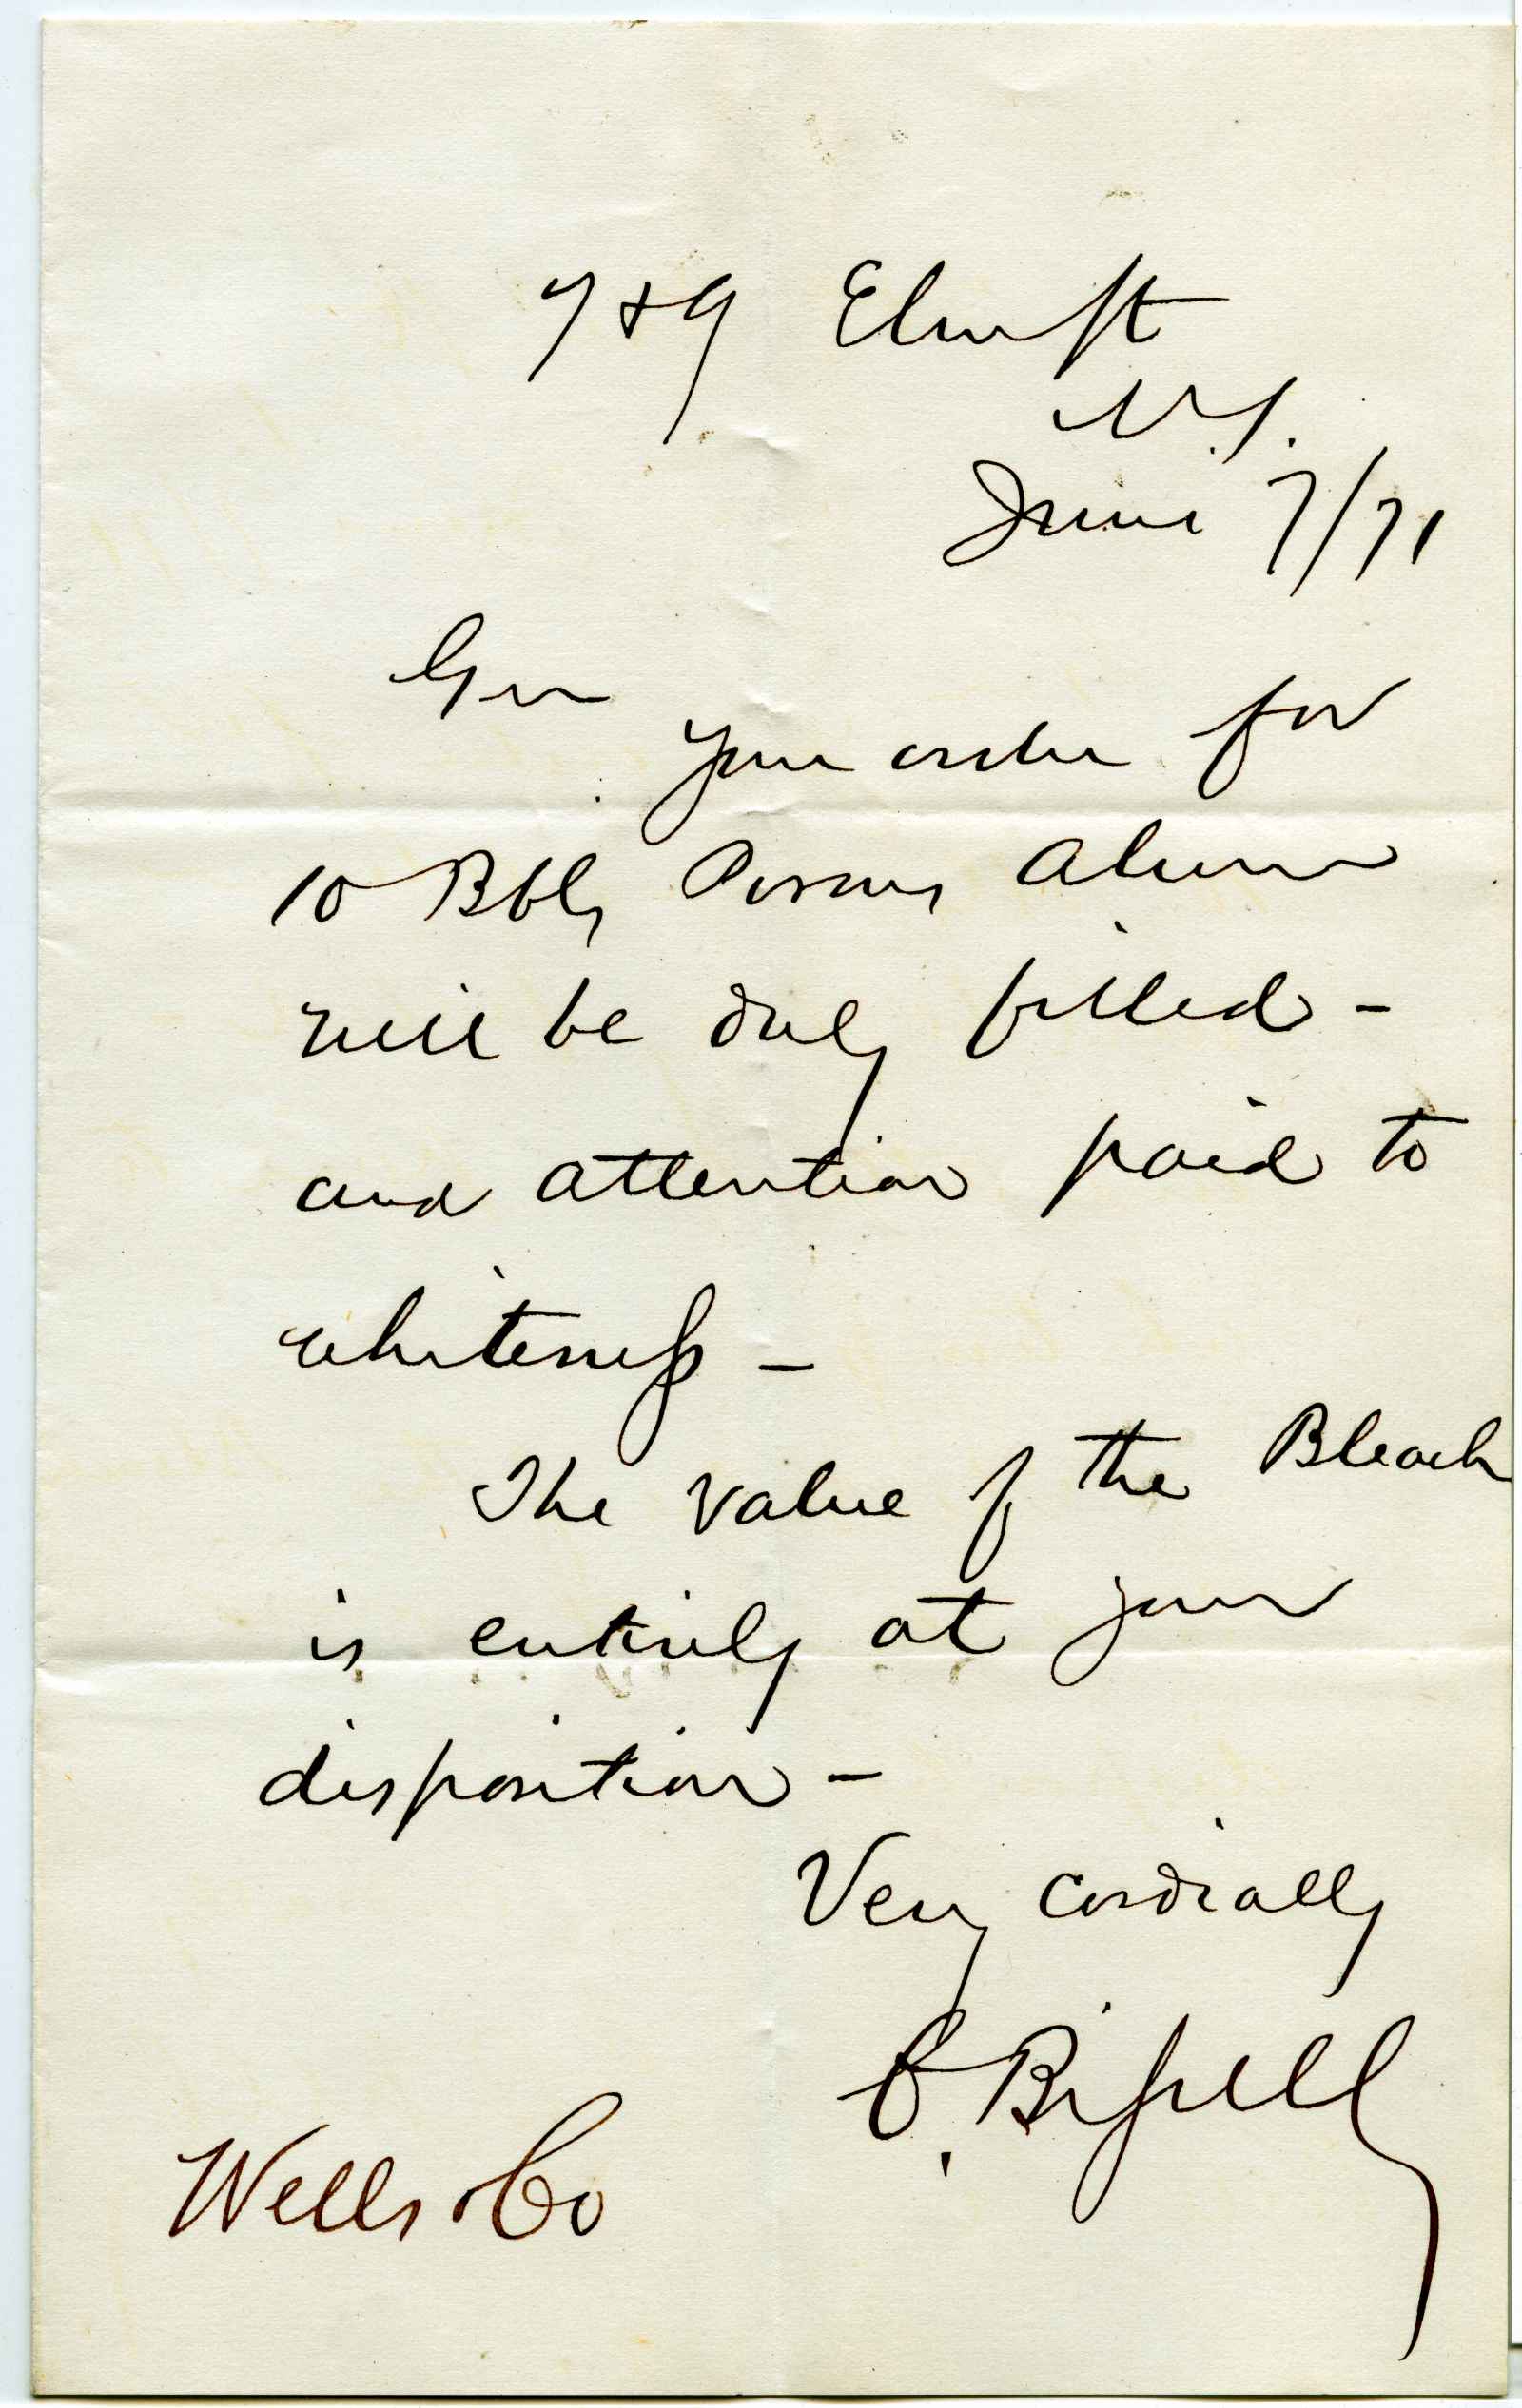 7 & 9 Elm St
N.Y.
June 7/71
Gen
Your order for
10 Bbls Porous Alum
will be duly filled -
and attention paid to
whiteness -
The value of the Bleach
is entirely at your
disposition -
Very cordially
Bissell
Wells & Co